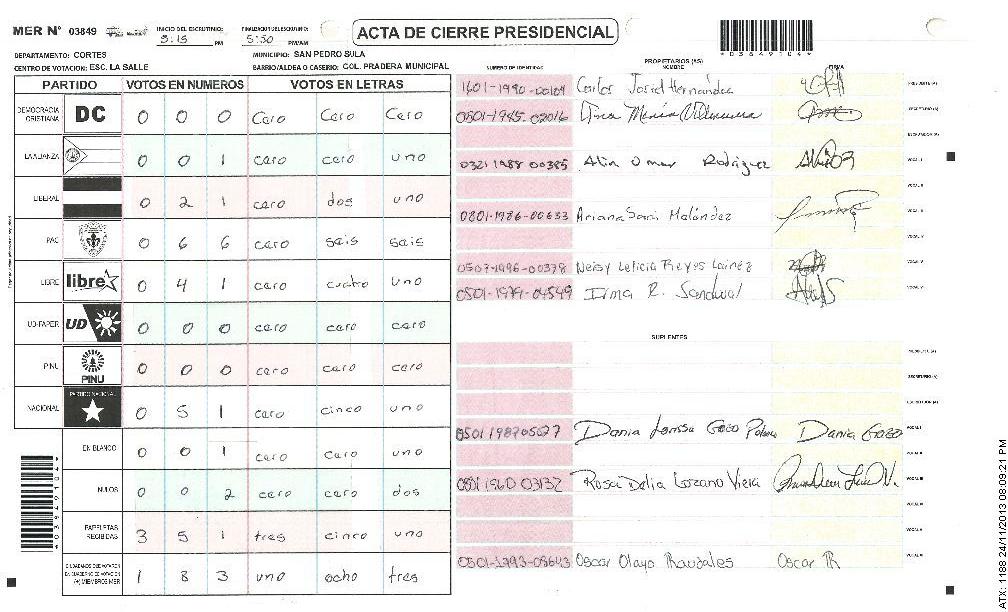 MER Nº 03849
INICIO DEL ESCRUTINIO: 5:15 PM
FINALIZACION DEL ESCRUTINIO: 5:50 PM/AM
ACTA DE CIERRE PRESIDENCIAL
*03849104*
DEPARTAMENTO: CORTES
MUNICIPIO: SAN PEDRO SULA
CENTRO DE VOTACION: ESC. LA SALLE
BARRIO/ALDEA O CASERIO: COL. PRADERA MUNICIPAL
PARTIDO VOTOS EN NUMEROS VOTOS EN LETRAS
DEMOCRACIA CRISTIANA DC 0 0 0 Cero Cero Cero
LA ALIANZA 0 0 1 cero cero uno
LIBERAL 0 2 1 cero dos uno
PAC 0 6 6 cero seis seis
LIBRE libre 0 4 1 cero cuatro uno
UD-FAPER UD 0 0 0 cero cero cero
PINU PINU 0 0 0 cero cero cero
NACIONAL PARTIDO NACIONAL 0 5 1 cero cinco uno
EN BLANCO 0 0 1 cero cero uno
NULOS 0 0 2 cero cero dos
PAPELETAS RECIBIDAS 3 5 1 tres cinco uno
CIUDADANOS QUE VOTARON EN CUADERNO DE VOTACION (+) MIEMBROS MER 1 8 3 uno ocho tres
PROPIETARIOS (AS)
NUMERO DE IDENTIDAD NOMBRE FIRMA
1601-1990-00109 Carlos Josid Hernández PRESIDENTE (A)
0501-1985-02016 Ana María Villanueva SECRETARIO (A)
ESCRUTADOR (A)
0321 1988 00385 Alin Omar Rodriguez VOCAL I
VOCAL II
0801-1986-00633 Ariana Sarai Meléndez VOCAL III
VOCAL IV
0507-1996-00378 Neisy Leticia Reyes Lainez VOCAL V
0501-1979-04549 Irma R. Sandoval
SUPLENTES
PRESIDENTE (A)
SECRETARIO (A)
ESCRUTADOR (A)
0501 198705027 Dania Larissa Gozo Dania Gozo VOCAL I
VOCAL II
0801 1960 03132 Rosa Delia Lozano Viera VOCAL III
VOCAL IV
VOCAL V
0501-1993-08643 Oscar Olayo Raudales Oscar R
ATX: 1188 24/11/2013 08:09:21 PM